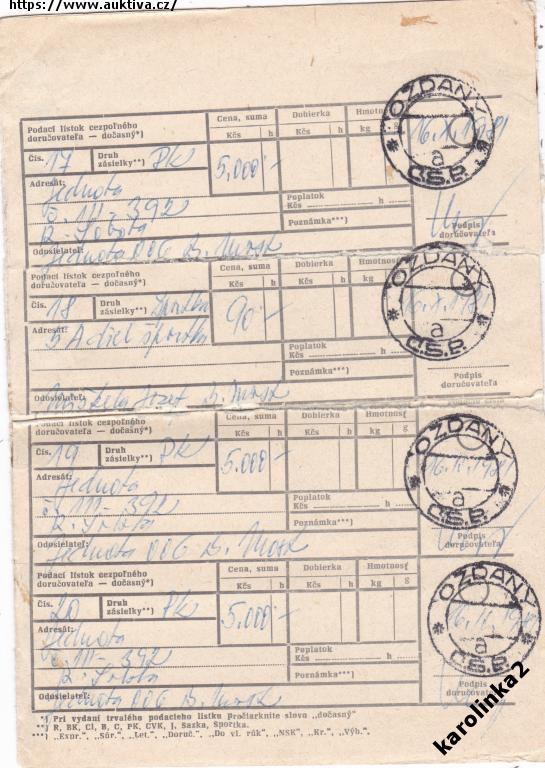 https://www.auktiva.cz/
Podací lístok cezpoľného
doručovateľa — dočasný*)
Cena, suma
Dobierka
Hmotnosť
Kčs h
h
kg g
OZDANY
16.X.1981
a
Č.S.P.
Čís. 17
Druh
zásielky**) PK
5.000.-
Adresát: Jednota
III - 392
R. Sobota
Poplatok
Kčs h
Poznámka***)
Podpis
doručovateľa
Odosielateľ: Jednota 006
Podací lístok cezpoľného
doručovateľa — dočasný*)
Cena, suma
Dobierka
Hmotnosť
Kčs h
h
kg g
OZDANY
a
Č.S.P.
Čís. 18
Druh
zásielky**)
90.-
Adresát: 5 A diel športka
Poplatok
Kčs h
Poznámka***)
Podpis
doručovateľa
Odosielateľ: Jozef
Podací lístok cezpoľného
doručovateľa — dočasný*)
Cena, suma
Dobierka
Hmotnosť
Kčs h
h
kg g
OZDANY
a
Č.S.P.
Čís. 19
Druh
zásielky**) PK
5.000.-
Adresát: Jednota
III - 392
R. Sobota
Poplatok
Kčs h
Poznámka***)
Podpis
doručovateľa
Odosielateľ: Jednota 006
Podací lístok cezpoľného
doručovateľa — dočasný*)
Cena, suma
Dobierka
Hmotnosť
Kčs h
h
kg g
OZDANY
a
Č.S.P.
Čís. 20
Druh
zásielky**) PK
5.000.-
Adresát: Jednota
III - 392
R. Sobota
Poplatok
Kčs h
Poznámka***)
Podpis
doručovateľa
Odosielateľ: Jednota 006
*) Pri vydaní trvalého podacieho lístku Prečiarknite slovo „dočasný"
**) R, BK, Cl, B, C, PK, CVK, J, Sazka, Sporítka.
***) „Expr.", „Súr.", „Let.", „Doruč.", „Do vl. rúk", „NSK", „Kr.", „Výb.",
karolinka2